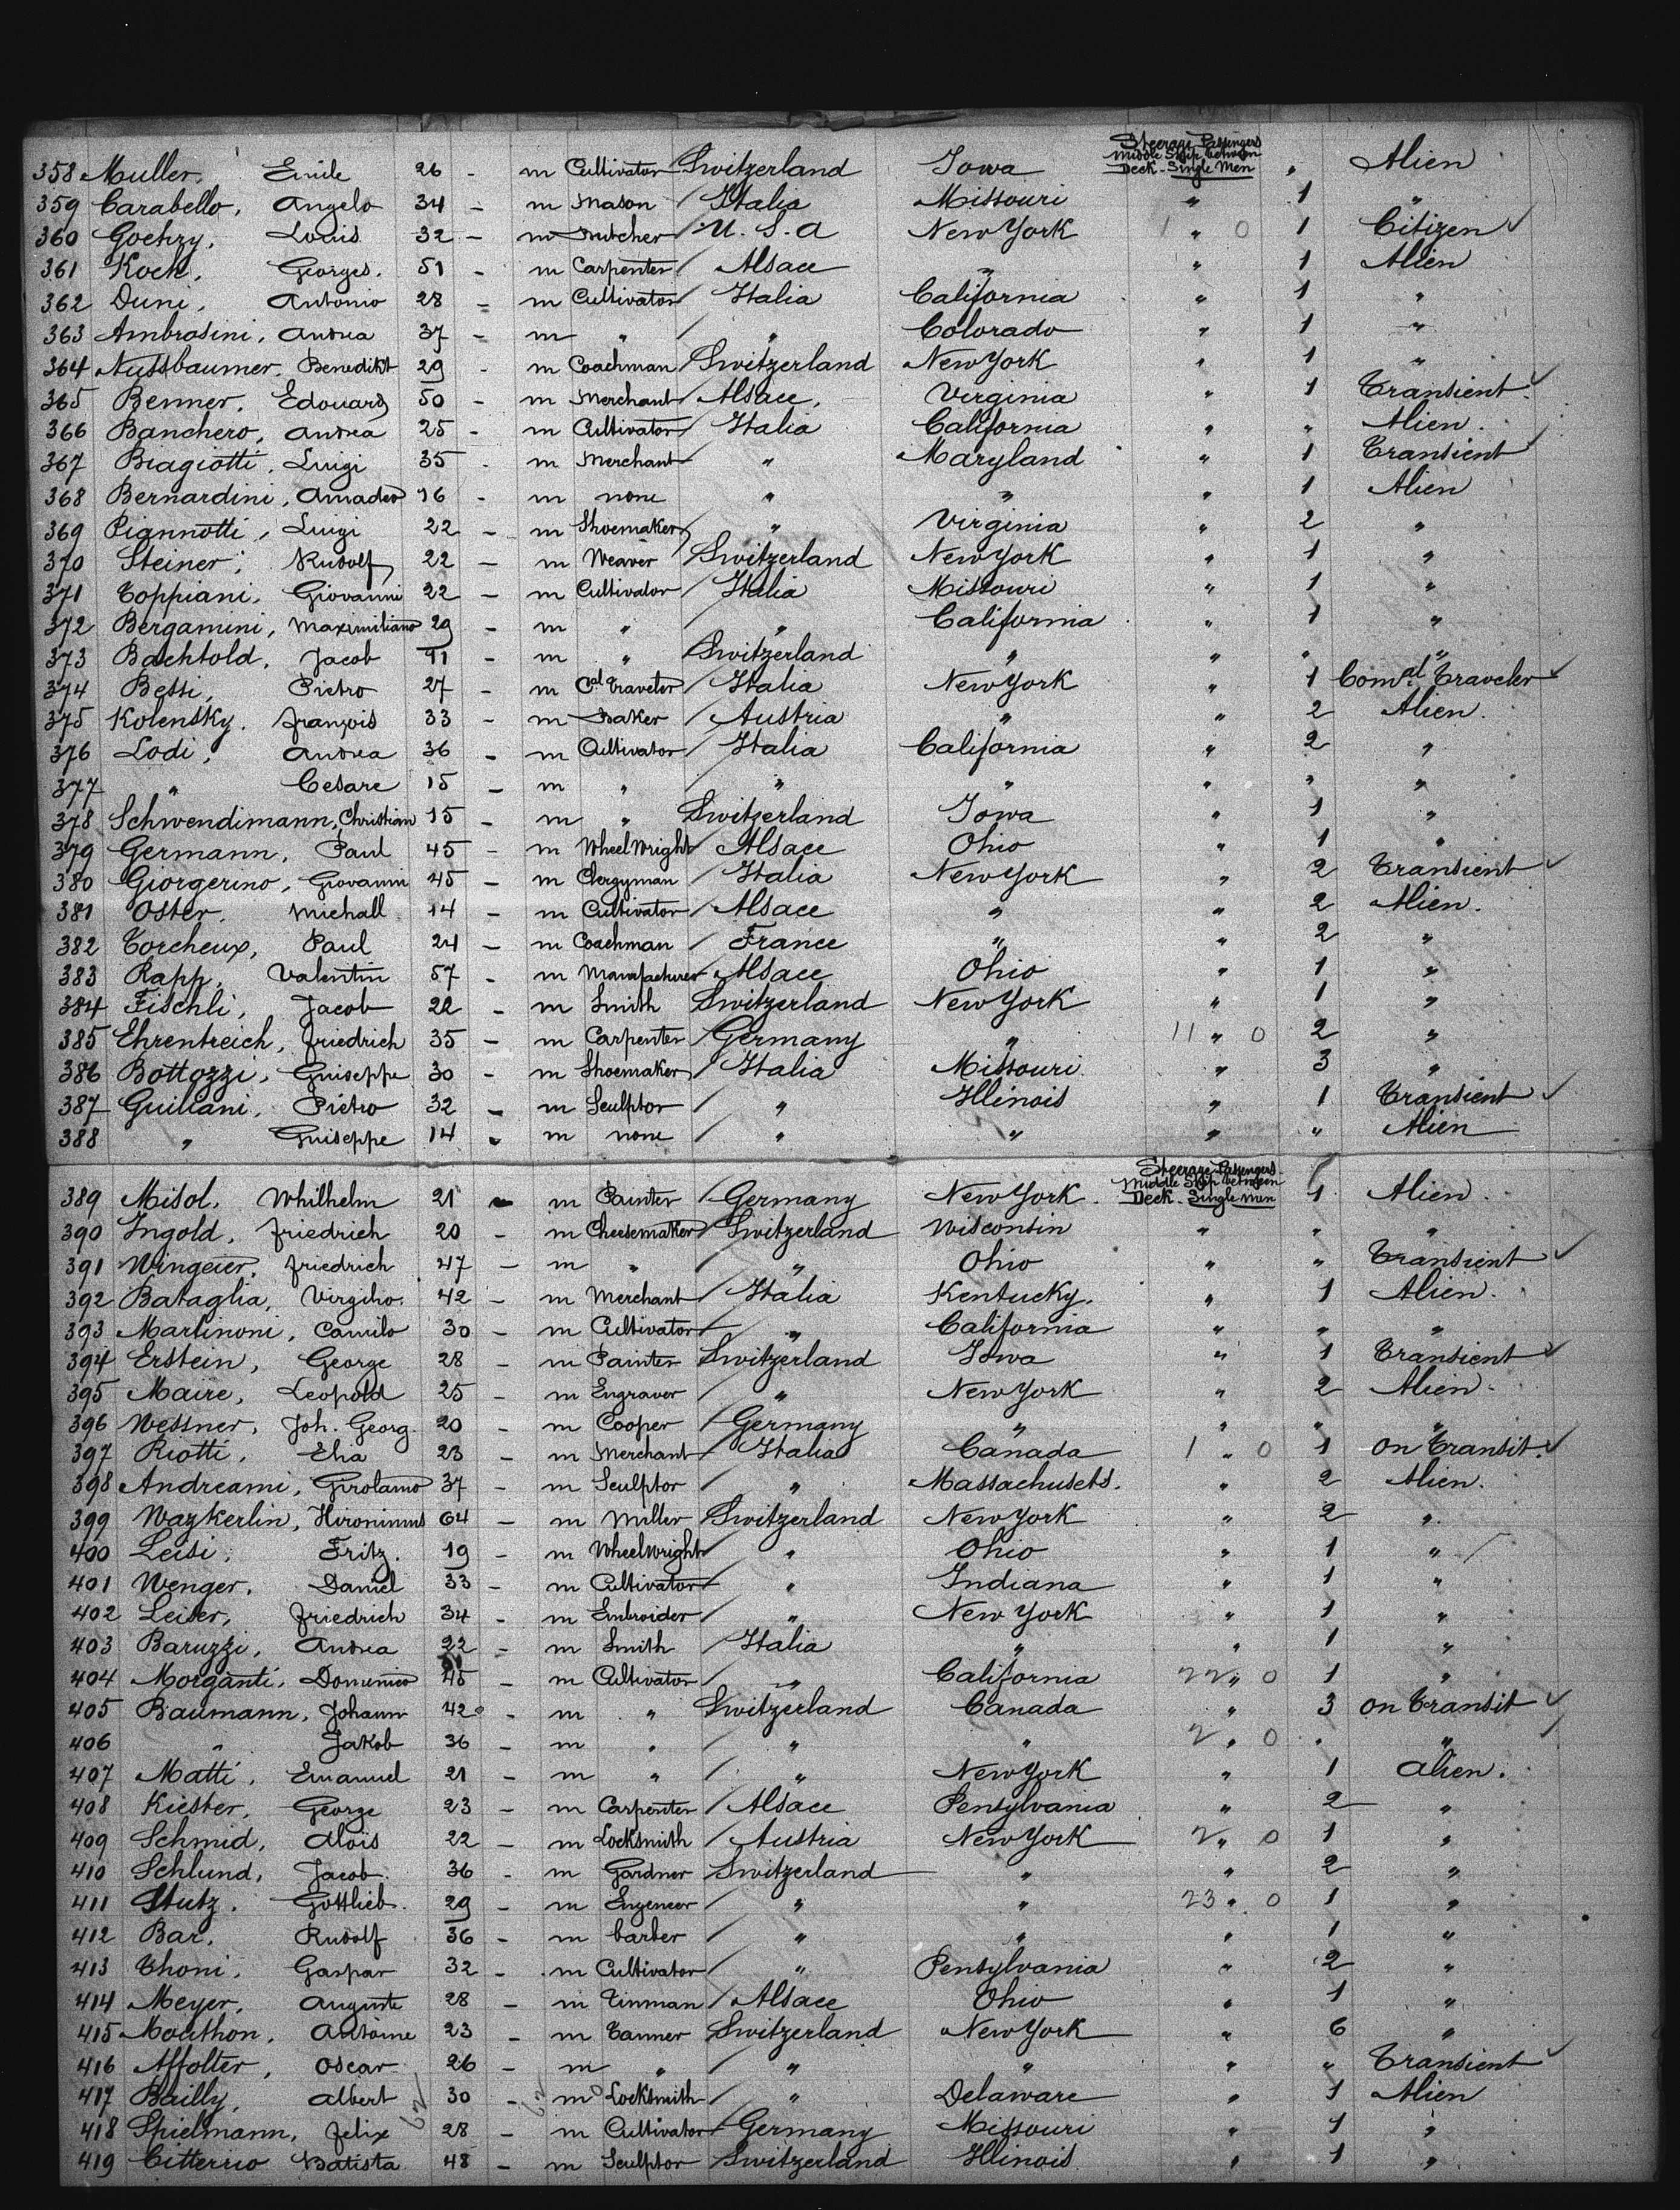 Steerage Passengers
Middle Ship between
358 Muller, Emile 26 - m Cultivator Switzerland Iowa Deck - Single Men " Alien
359 Carabello, Angelo 34 - m Mason Italia Missouri " 1 "
360 Goehzy, Louis 32 - m Butcher U. S. A New York 1 " 0 1 Citizen ✓
361 Koch, Georges. 51 - m Carpenter Alsace " " 1 Alien
362 Duni, Antonio 28 - m Cultivator Italia California " 1 "
363 Ambrosini, Andrea 37 - m " " Colorado " 1 "
364 Nussbaumer, Benedikt 29 - m Coachman Switzerland New York " 1 "
365 Benner, Edouard 50 - m Merchant Alsace, Virginia " 1 Transient ✓
366 Banchero, Andrea 25 - m Cultivator Italia California " " Alien.
367 Biagiotti, Luigi 35 - m Merchant " Maryland " 1 Transient ✓
368 Bernardini, Amadeo 16 - m none " " " 1 Alien
369 Piannotti, Luigi 22 - m Shoemaker " Virginia " 2 "
370 Steiner, Rudolf 22 - m Weaver Switzerland New York " 1 "
371 Toppiani, Giovanni 22 - m Cultivator Italia Missouri " 1 "
372 Bergamini, Maximiliano 29 - m " " California " 1 "
373 Bachtold, Jacob 41 - m " Switzerland " " " "
374 Betti, Pietro 27 - m Cal Traveler Italia New York " 1 Comal Traveler ✓
375 Kolensky, François 33 - m Baker Austria " " 2 Alien.
376 Lodi, Andrea 36 - m Cultivator Italia California " 2 "
377 " Cesare 15 - m " " " " " "
378 Schwendimann, Christian 15 - m " Switzerland Iowa " 1 "
379 Germann, Paul 45 - m Wheel Wright Alsace Ohio " 1 "
380 Giorgerino, Giovanni 45 - m Clergyman Italia New York " 2 Transient ✓
381 Oster, Michall 14 - m Cultivator Alsace " " 2 Alien.
382 Torcheux, Paul 24 - m Coachman France " " 2 "
383 Rapp, Valentin 57 - m Manufacturer Alsace Ohio " 1 "
384 Fischli, Jacob 22 - m Smith Switzerland New York " 1 "
385 Ehrentreich, Friedrich 35 - m Carpenter Germany " 11 " 0 2 "
386 Bottozzi, Guiseppe 30 - m Shoemaker Italia Missouri " 3 "
387 Guiliani, Pietro 32 - m Sculptor " Illinois " 1 Transient ✓
388 " Guiseppe 14 - m none " " " " Alien
Steerage Passengers
Middle Ship between
389 Misol, Whilhelm 21 - m Painter Germany New York Deck - Single Men 1 Alien
390 Ingold, Friedrich 20 - m Cheesemaker Switzerland Wisconsin " " "
391 Wingeier, Friedrich 47 - m " " Ohio " " Transient ✓
392 Bataglia, Virgiho. 42 - m Merchant Italia Kentucky. " 1 Alien.
393 Martinoni, Camilo 30 - m Cultivator " California " " "
394 Erstein, George 28 - m Painter Switzerland Iowa " 1 Transient ✓
395 Maire, Leopold 25 - m Engraver " New York " 2 Alien.
396 Wessner, Joh. Georg. 20 - m Cooper Germany " " " "
397 Riotti, Elia 23 - m Merchant Italia Canada 1 " 0 1 on Transit. ✓
398 Andreami, Girolamo 37 - m Sculptor " Massachusets. " 2 Alien.
399 Waykerlin, Hironimus 64 - m Miller Switzerland New York " 2 "
400 Leisi, Fritz. 19 - m Wheelwright " Ohio " 1 "
401 Wenger, Daniel 33 - m Cultivator " Indiana " 1 "
402 Leiser, Friedrich 34 - m Embroider " New York " 1 "
403 Baruzzi, Andrea 22 - m Smith Italia " " 1 "
404 Morganti, Domenico 45 - m Cultivator " California 22 " 0 1 "
405 Baumann, Johann 42 - m " Switzerland Canada " 3 on Transit ✓
406 " Jakob 36 - m " " " 2 " 0 " "
407 Matti, Emanuel 21 - m " " New York " 1 Alien.
408 Kiester, George 23 - m Carpenter Alsace Pensylvania " 2 "
409 Schmid, Alois 22 - m Locksmith Austria New York 2 " 0 1 "
410 Schlund, Jacob. 36 - m Gardner Switzerland " " 2 "
411 Stutz, Gottlieb. 29 - m Engeneer " " 23 " 0 1 "
412 Bar, Rudolf 36 - m barber " " " 1 "
413 Thoni, Gaspar 32 - m Cultivator " Pensylvania " 2 "
414 Meyer, Auguste 28 - m Tinman Alsace Ohio " 1 "
415 Mouthon, Antoine 23 - m Tanner Switzerland New York " 6 "
416 Affolter, Oscar 26 - m " " " " " Transient ✓
417 Bailly, Albert 30 - m Locksmith " Delaware " 1 Alien
418 Spielmann, Felix 28 - m Cultivator Germany Missouri " 1 "
419 Citterrio Batista 48 - m Sculptor Switzerland Illinois " 1 "